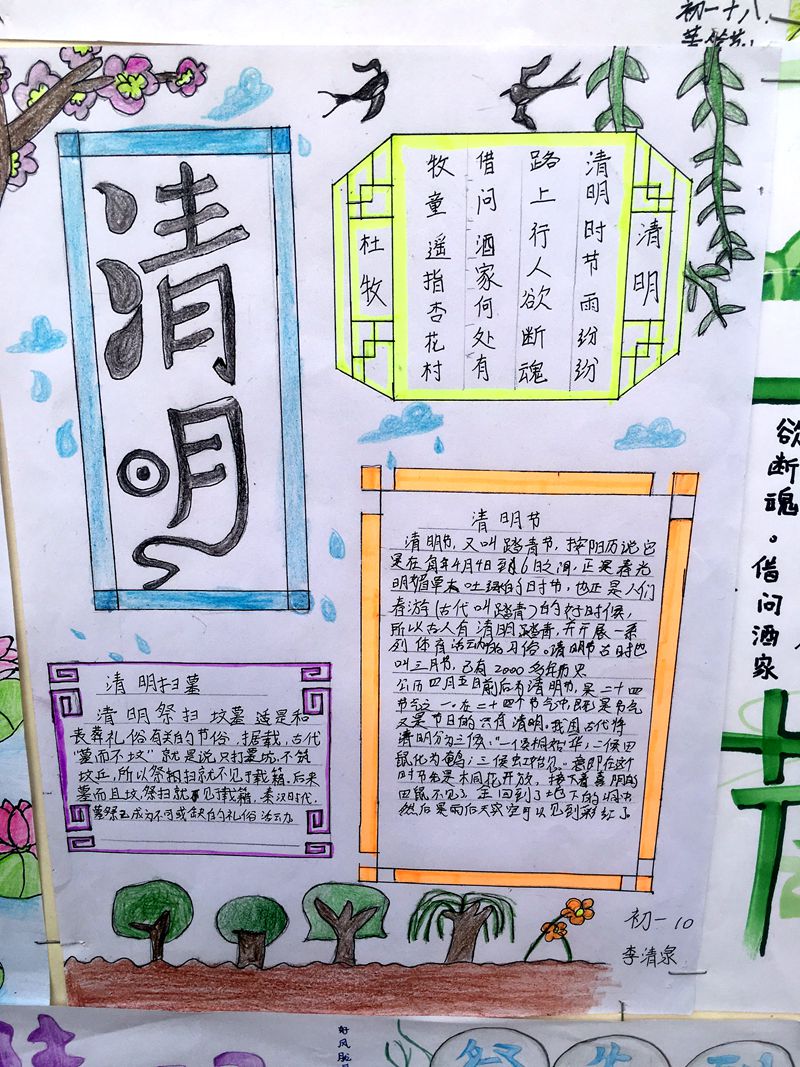 初一十八
清明
清明
清明时节雨纷纷
路上行人欲断魂
借问酒家何处有
牧童遥指杏花村
杜牧
清明节
清明节，又叫踏青节，按阳历说它
是在每年4月4日到6日之间，正是春光
明媚草木吐绿的时节，也正是人们
春游（古代叫踏青）的好时候，
所以古人有清明踏青，并开展一系
列体育活动的习俗。清明节古时也
叫三月节，已有2000多年历史
公历四月五日前后为清明节，是二十四
节气之一。在二十四个节气中，既是节气
又是节日的只有清明。我国古代将
清明分为三候："一候桐始华；二候田
鼠化为鹌；三候虹始见。"意即在这个
时节先是木同花开放，接下着喜阴的
田鼠不见了，全回到了地下的洞中
然后是雨后天空可以见到彩虹了
清明扫墓
清明祭扫坟墓这是和
丧葬礼俗有关的节俗，据载，古代
"墓而不坟"就是说只打墓坑，不筑
坟丘，所以祭扫就不见于载籍。后来
墓而且坟祭扫就见于载籍。秦汉时代，
墓祭已成为不可或缺的礼俗活动
初一10
李清泉
欲断魂。借问酒家